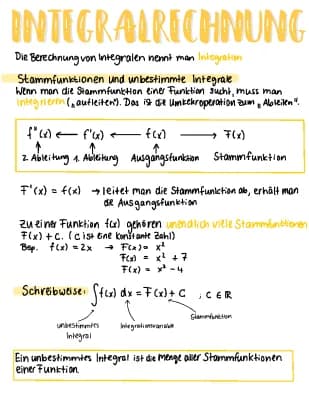 INTEGRALRECHNUNG
Die Berechnung von Integralen nennt man Integration
Stammfunktionen und unbestimmte Integrale
Wenn man die Stammfunktion einer Funktion sucht, muss man
integrieren („aufleiten"). Das ist die Umkehroperation zum „Ableiten".
f''(x) ← f'(x) ← f(x) → F(x)
2. Ableitung 1. Ableitung Ausgangsfunktion Stammfunktion
F'(x) = f(x) → leitet man die Stammfunktion ab, erhält man
die Ausgangsfunktion
Zu einer Funktion f(x) gehören unendlich viele Stammfunktionen
F(x) + C. (C ist eine konstante Zahl)
Bsp. f(x) = 2x → F(x) = x²
F(x) = x² + 7
F(x) = x² - 4
Schreibweise: ∫f(x) dx = F(x) + C , C ∈ ℝ
unbestimmtes Integral
Integrationsvariable
Stammfunktion
Ein unbestimmtes Integral ist die Menge aller Stammfunktionen
einer Funktion.